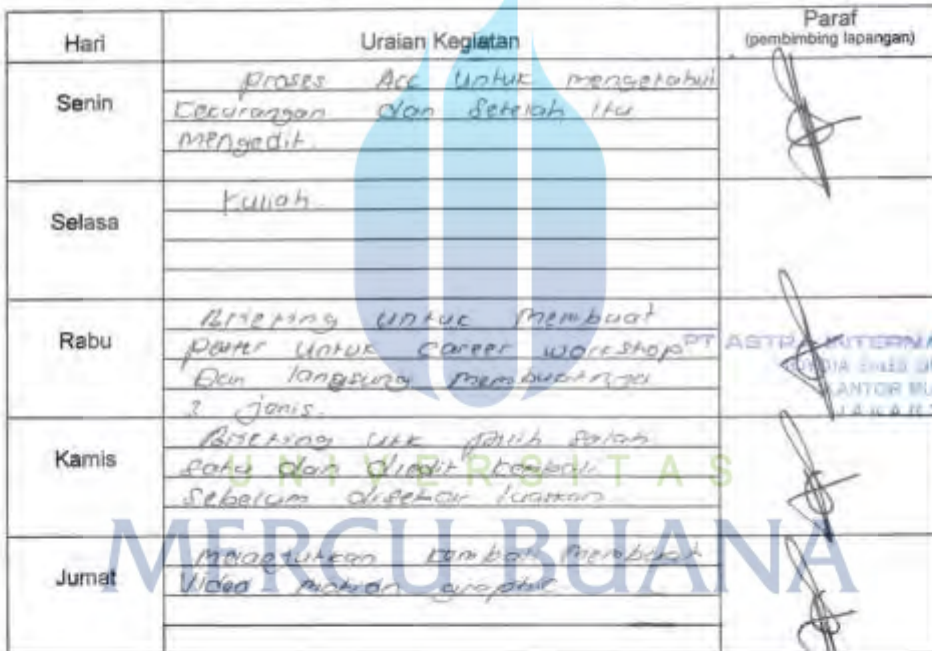 Hari Uraian Kegiatan Paraf
(pembimbing lapangan)
Senin
proses Acc untuk mengetahui
Kekurangan dan Setelah itu
mengedit.
Selasa
Kuliah.
Rabu
Briefing untuk membuat
poster untuk career workshop
Dan langsung membuatnya
2 jenis.
PT ASTRA INTERNA
KANTOR MU
JAKAR
Kamis
Briefing utk pilih salah
satu dan diedit kembali
Sebelum disebar luaskan
UNIVERSITAS
MERCU BUANA
Jumat
Melanjutkan kembali membuat
Video motion graphic